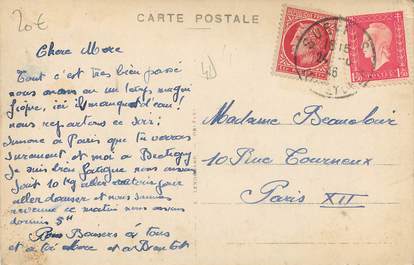 20€
CARTE POSTALE
Chere Mere
Tout s'est tres bien passé
nous avons eu un temps magni
fique, ici il manque d'eau!
nous repartons ce soir
Simone a Paris que tu verras
surement et moi a
Je suis bien fatiguée nous avons
fait 10 Kg aller retour pour
aller danser et nous sommes
revenue ce matin nous avons
dormis 5h
Bons Baisers a tous
et a toi Mere et a
Madame Beauloir
10 Rue Tourneux
Paris XII